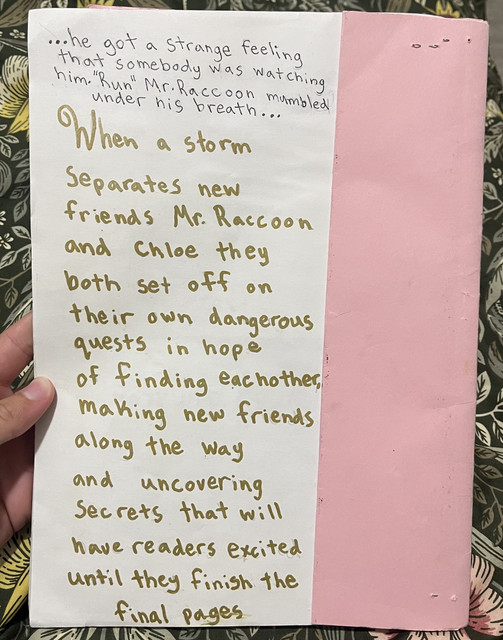 ...he got a strange feeling
that somebody was watching
him. "Run" Mr. Raccoon mumbled
under his breath...
When a storm
separates new
friends Mr. Raccoon
and Chloe they
both set off on
their own dangerous
quests in hope
of finding eachother,
making new friends
along the way
and uncovering
secrets that will
have readers excited
until they finish the
final pages